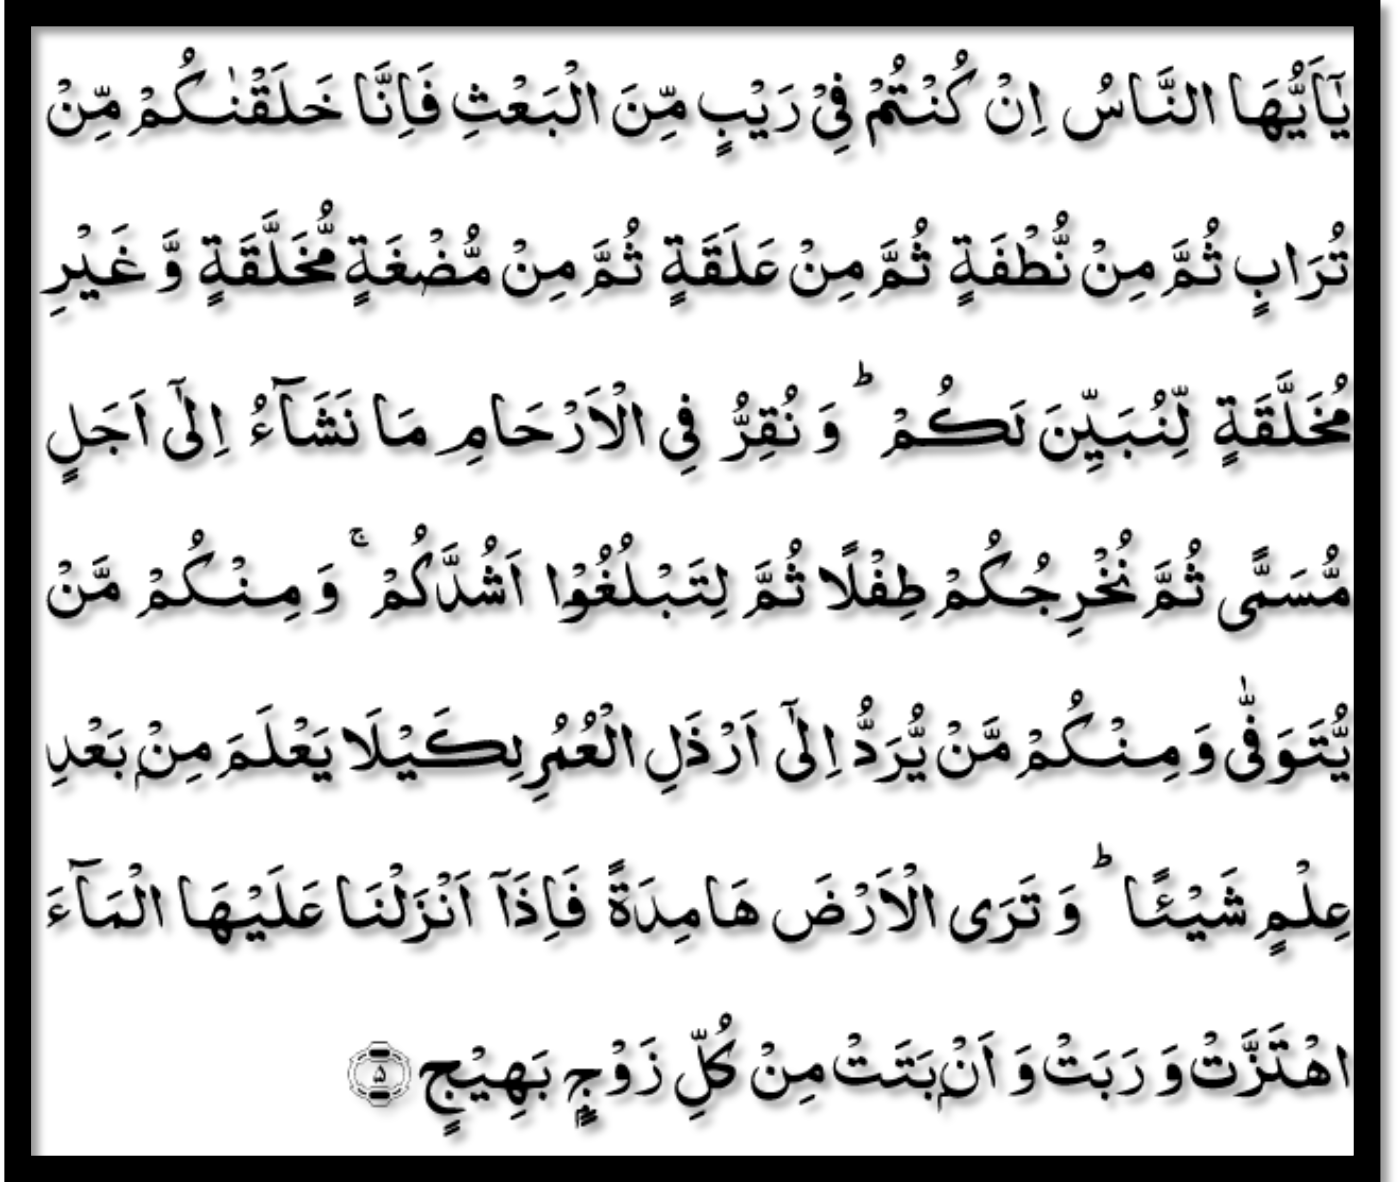 يٰۤاَيُّهَا النَّاسُ اِنْ كُنْتُمْ فِيْ رَيْبٍ مِّنَ الْبَعْثِ فَاِنَّا خَلَقْنٰكُمْ مِّنْ
تُرَابٍ ثُمَّ مِنْ نُّطْفَةٍ ثُمَّ مِنْ عَلَقَةٍ ثُمَّ مِنْ مُّضْغَةٍ مُّخَلَّقَةٍ وَّ غَيْرِ
مُخَلَّقَةٍ لِّنُبَيِّنَ لَكُمْ ؕ وَ نُقِرُّ فِي الْاَرْحَامِ مَا نَشَآءُ اِلٰۤى اَجَلٍ
مُّسَمًّى ثُمَّ نُخْرِجُكُمْ طِفْلًا ثُمَّ لِتَبْلُغُوْۤا اَشُدَّكُمْ ۚ وَ مِنْكُمْ مَّنْ
يُّتَوَفّٰى وَ مِنْكُمْ مَّنْ يُّرَدُّ اِلٰۤى اَرْذَلِ الْعُمُرِ لِكَيْلَا يَعْلَمَ مِنْۢ بَعْدِ
عِلْمٍ شَيْـًٔا ؕ وَ تَرَى الْاَرْضَ هَامِدَةً فَاِذَاۤ اَنْزَلْنَا عَلَيْهَا الْمَآءَ
اهْتَزَّتْ وَ رَبَتْ وَ اَنْۢبَتَتْ مِنْ كُلِّ زَوْجٍۭ بَهِيْجٍ ۵